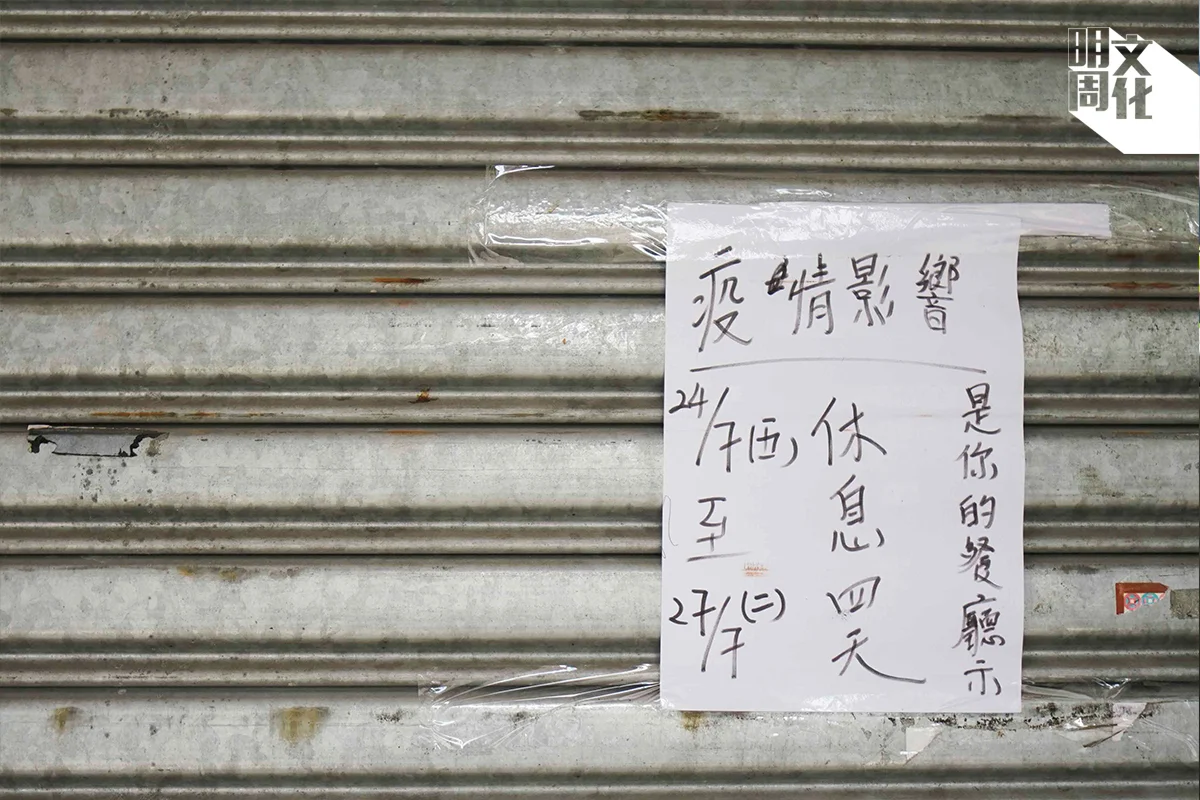 明周文化
疫情影響
24/7(五)
至
27/7(二)
休息四天
是你的餐廳示